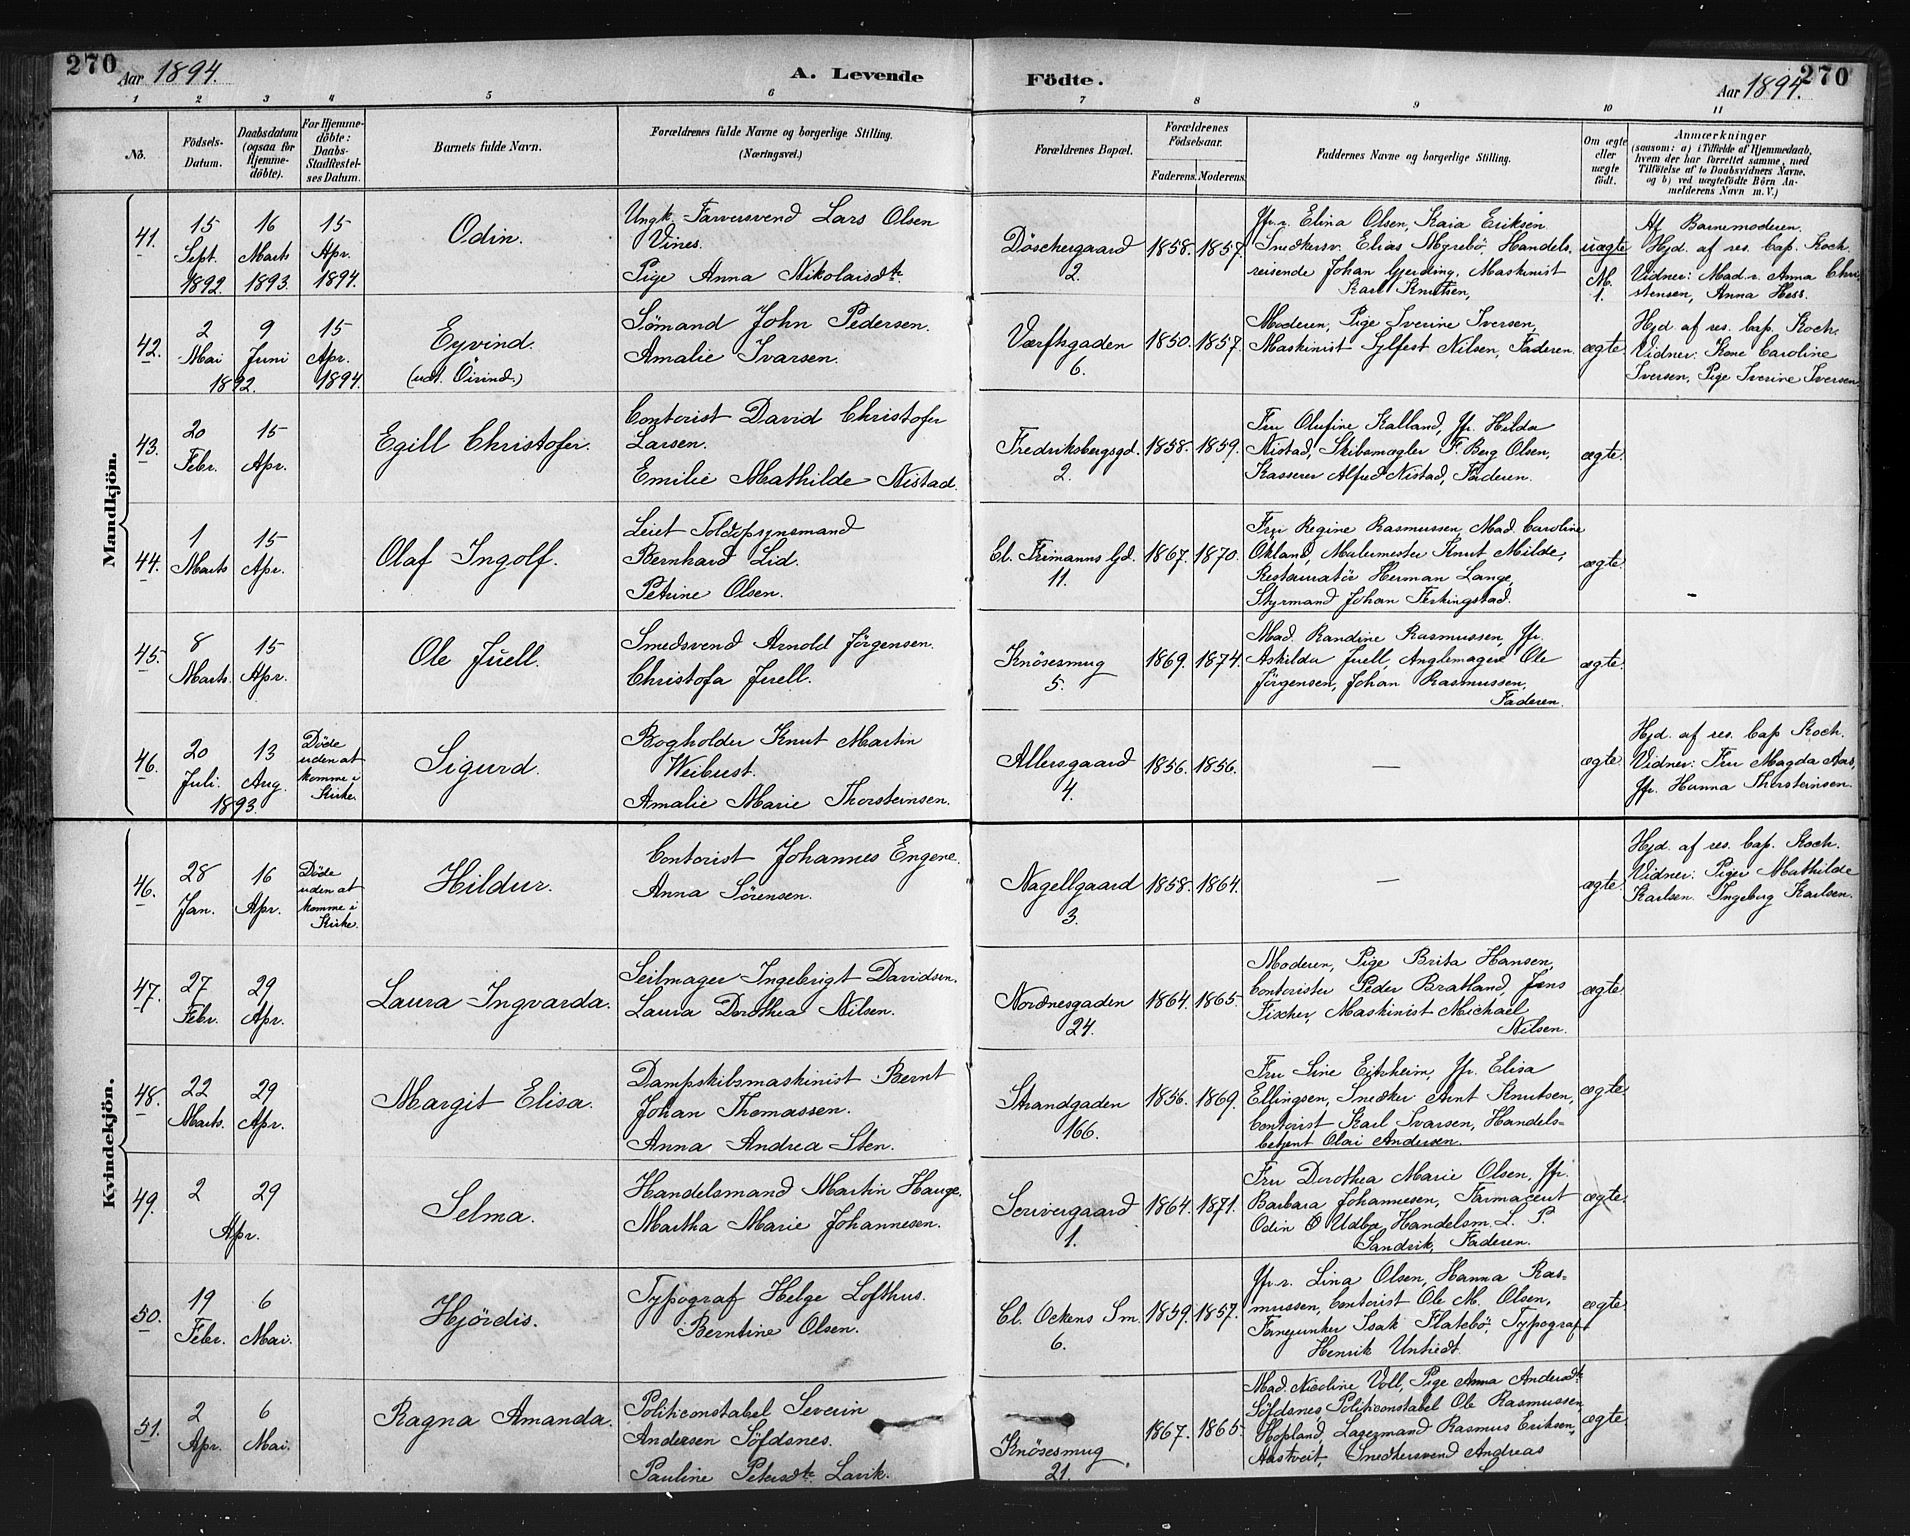 270
Aar 1894.
A. Levende
Födte.
Aar 1894.
270
1 2 3 4 5 6 7 8 9 10 11
No.
Födsels-
Datum.
Daabsdatum
(ogsaa for
Hjemme-
döbte).
For Hjemme-
döbte:
Daabs-
Stadfæstel-
ses Datum.
Barnets fulde Navn.
Forældrenes fulde Navne og borgerlige Stilling.
(Næringsvei.)
Forældrenes Bopæl.
Forældrenes
Födselsaar.
Faderens. Moderens.
Faddernes Navne og borgerlige Stilling.
Om ægte
eller
uægte
födt.
Anmærkninger
(saasom: a) i Tilfælde af Hjemmedaab,
hvem der har forrettet samme, med
Tilföielse af to Daabsvidners Navne,
og b) ved uægtefödte Börn An-
melderens Navn m. V.)
Mandkjön.
41.
15
Sept.
1892.
16
Marts
1893.
15
Apr.
1894.
Odin.
Ungk. Farversvend Lars Olsen
Vines.
Pige Anna Nikolaisdtr.
Döschergaard
2.
1858. 1857.
Jfr.r. Elina Olsen, Kaia Eriksen
Snedkersv. Elias Myrebö, Handels-
reisende Johan Gjerding, Maskinist
Karl Knutsen,
uægte
M.
1.
Af Barnemoderen.
Hjd. af res. Cap. Koch.
Vidner: Mad.r. Anna Chri-
stensen, Anna Hess.
42.
2
Mai
9
Juni
1892.
15
Apr.
1894.
Eyvind.
(udt. Öivind.)
Sömand John Pedersen.
Amalie Ivarsen.
Værftsgaden
6.
1850. 1857.
Moderen, Pige Iverine Iversen,
Maskinist Sylfest Nilsen, Faderen.
ægte
Hjd. af res. Cap. Koch.
Vidner: Kone Caroline
Iversen, Pige Iverine Iversen.
43.
20
Febr.
15
Apr.
Egill Christofer.
Contorist David Christofer
Larsen.
Emilie Mathilde Nistad.
Fredriksbergsgd.
2.
1858. 1859.
Fru Olufine Kalland, Jfr. Hilda
Nistad, Skibsmægler F. Berg Olsen,
Kasserer Alfred Nistad, Faderen.
ægte.
44.
1
Marts
15
Apr.
Olaf Ingolf.
Leiet Toldopsynsmand
Bernhard Lid.
Petrine Olsen.
Cl. Frimanns Gd.
11.
1867. 1870.
Fru Regine Rasmussen, Mad Caroline
Økland, Malermester Knut Milde,
Restauratör Herman Lange,
Styrmand Johan Ferkingstad.
ægte.
45.
8
Marts.
15
Apr.
Ole Juell.
Smedsvend Arnold Jörgensen.
Christofa Juell.
Knösesmug
5.
1869. 1874.
Mad. Randine Rasmussen, Jfr.
Askilda Juell, Anglemager Ole
Jörgensen, Johan Rasmussen,
Faderen.
ægte.
46.
20
Juli.
13
Aug.
1893.
Döde
uden at
komme i
Kirke.
Sigurd.
Bogholder Knut Martin
Weibust.
Amalie Marie Thorsteinsen.
Allersgaard
4.
1856. 1856.
—
ægte.
Hjd. af res. Cap Koch.
Vidner: Fru Magda Aas,
Jfr. Hanna Thorsteinsen.
Kvindekjön.
46.
28
Jan.
16
Apr.
Döde
uden at
komme i
Kirke.
Hildur.
Contorist Johannes Engene.
Anna Sörensen.
Nagellgaard
3.
1858. 1864.
—
ægte.
Hjd. af res. Cap. Koch.
Vidner: Piger Mathilde
Karlsen. Ingeborg Karlsen.
47.
27
Febr.
29
Apr.
Laura Ingvarda.
Seilmager Ingebrigt Davidsen.
Laura Dorothea Nilsen.
Nordnesgaden
24.
1864. 1865.
Moderen, Pige Brita Hansen,
Contorister Peder Bratland, Jens
Fischer, Maskinist Michael
Nilsen.
ægte
48.
22
Marts.
29
Apr.
Margit Elisa.
Dampskibsmaskinist Bernt
Johan Thomassen.
Anna Andrea Sten.
Strandgaden
166.
1856. 1869.
Fru Sine Eitrheim, Jfr. Elisa
Ellingsen, Snedker Arnt Knutsen,
Contorist Karl Ivarsen, Handels-
betjent Olai Andersen.
ægte.
49.
2
29
Apr.
Selma.
Handelsmand Martin Hauge.
Martha Marie Johannesen.
Scrivergaard
1.
1864. 1871.
Fru Dorothea Marie Olsen, Jfr.
Barbara Johannesen, Farmaceut
Odin O Udbø, Handelsm. L. P.
Sandvik, Faderen.
ægte.
50.
19
Febr.
6
Mai.
Hjördis.
Typograf Helge Lofthus.
Berntine Olsen.
Cl. Ockens Sm.
6.
1859. 1857.
Jfr.r. Lina Olsen, Hanna Ras-
mussen, Contorist Ole M. Olsen,
Fanejunker Isak Flatebö, Typograf
Henrik Untiedt.
ægte.
51.
2
Apr.
6
Mai.
Ragna Amanda.
Politiconstabel Severin
Andersen Söfdsnes.
Pauline Petersdtr. Lavik.
Knösesmug
21.
1867. 1865.
Mad. Nicoline Voll, Pige Anna Andersdtr
Söfdsnes, Politiconstabel Ole Rasmussen
Hopland, Lagermand Rasmus Eriksen
Aastveit, Snedkersvend Andreas
ægte.